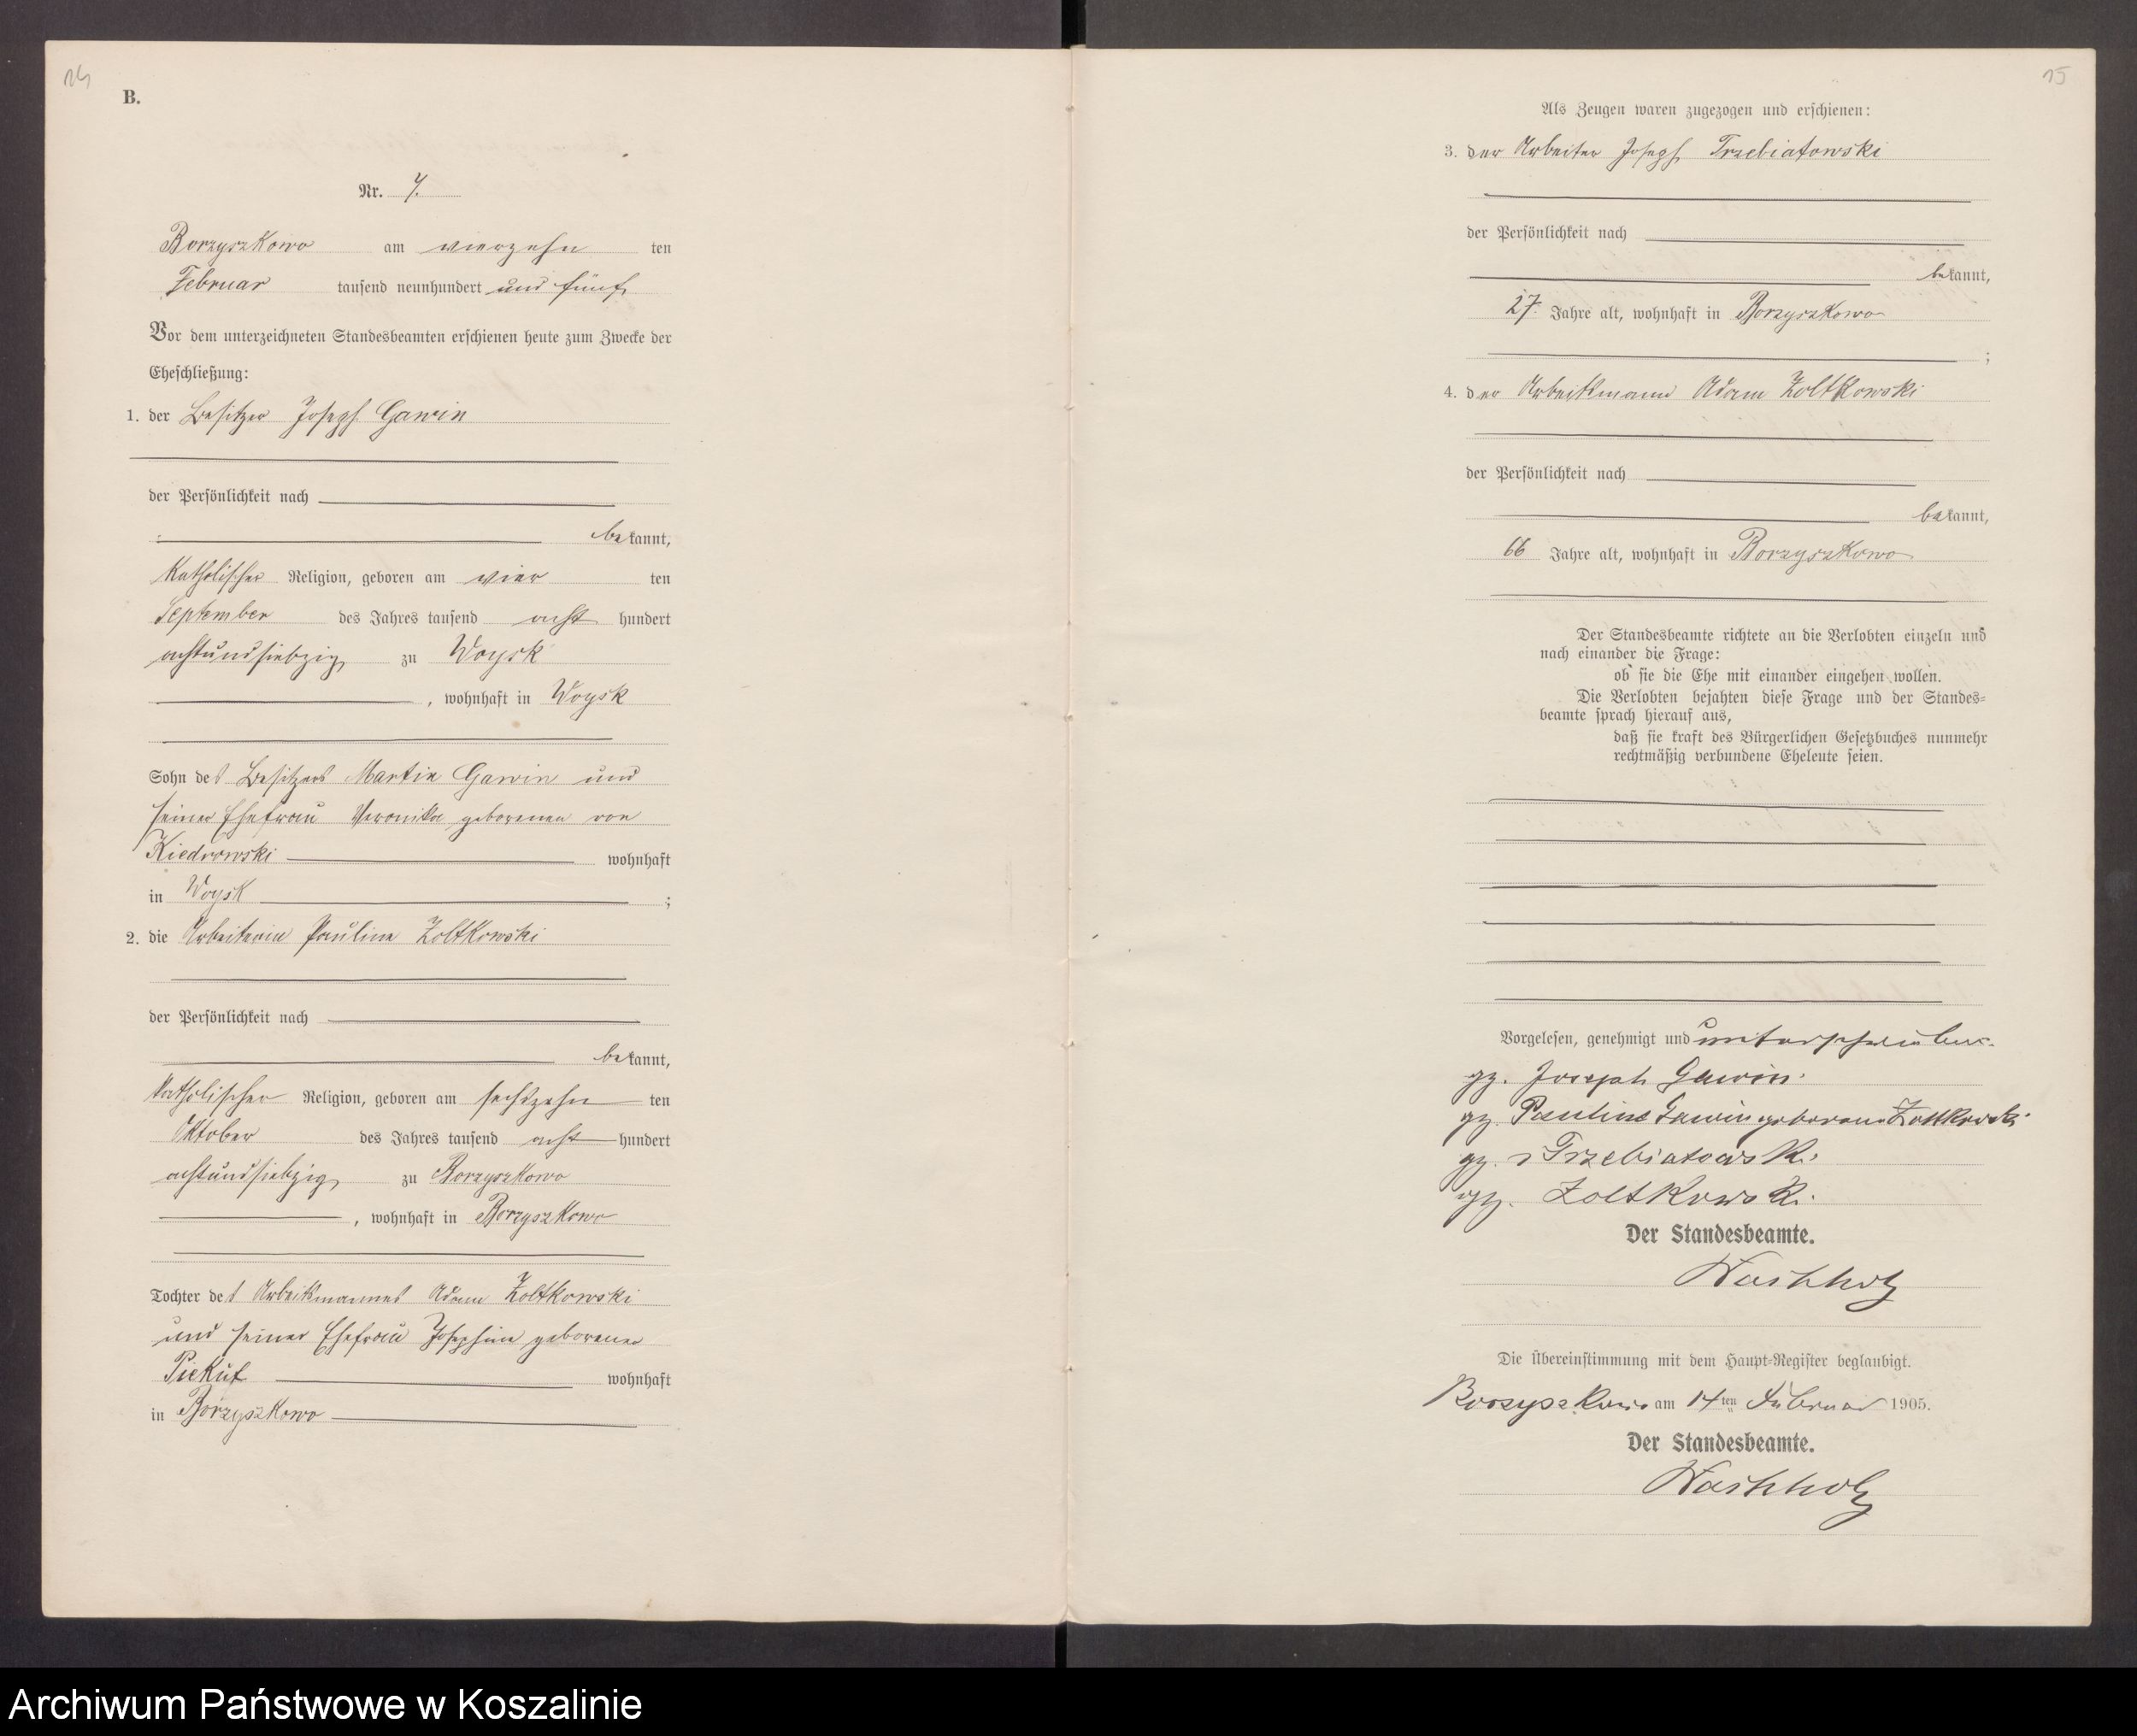 14
B.
Nr. 7.
Borzyszkowo am vierzehn ten
Februar tausend neunhundert und fünf
Vor dem unterzeichneten Standesbeamten erschienen heute zum Zwecke der
Eheschließung:
1. der Besitzer Joseph Gawin
der Persönlichkeit nach
bekannt,
katholischer Religion, geboren am vier ten
September des Jahres tausend acht hundert
achtundsiebzig zu Woysk
, wohnhaft in Woysk
Sohn des Besitzers Martin Gawin und
seiner Ehefrau Veronika geborenen von
Kiedrowski wohnhaft
in Woysk ;
2. die Arbeiterin Paulina Zoltkowski
der Persönlichkeit nach
bekannt,
katholischer Religion, geboren am sechszehn ten
Oktober des Jahres tausend acht hundert
achtundsiebzig zu Borzyszkowo
, wohnhaft in Borzyszkowo
Tochter des Arbeitsmannes Adam Zoltkowski
und seiner Ehefrau Josephine geborenen
Piekut wohnhaft
in Borzyszkowo
15
Als Zeugen waren zugezogen und erschienen:
3. der Arbeiter Joseph Trzebiatowski
der Persönlichkeit nach
bekannt,
27. Jahre alt, wohnhaft in Borzyszkowo
;
4. der Arbeitsmann Adam Zoltkowski
der Persönlichkeit nach
bekannt,
66 Jahre alt, wohnhaft in Borzyszkowo
Der Standesbeamte richtete an die Verlobten einzeln und
nach einander die Frage:
ob sie die Ehe mit einander eingehen wollen.
Die Verlobten bejahten diese Frage und der Standes-
beamte sprach hierauf aus,
daß sie kraft des Bürgerlichen Gesetzbuches nunmehr
rechtmäßig verbundene Eheleute seien.
Vorgelesen, genehmigt und unterschrieben.
gz. Joseph Gawin.
gz. Pauline Gawin geborene Zoltkowski
gz. Trzebiatowski
gz. Zoltkowski.
Der Standesbeamte.
Waschholz
Die Übereinstimmung mit dem Haupt-Register beglaubigt.
Borzyszkowo am 14ten Februar 1905.
Der Standesbeamte.
Waschholz
Archiwum Państwowe w Koszalinie